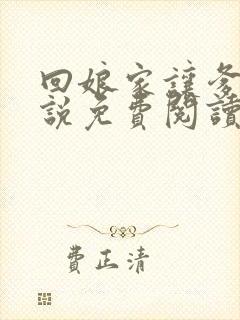 回娘家讓爹
說免費閱讀
費正清